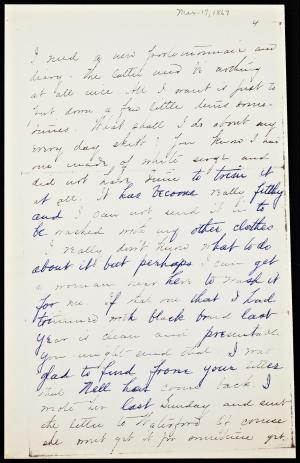 Mar. 17, 1867
4
I need a new portemonnaie and
diary. The latter need be nothing
at all nice. All I want is just to
put down a few little items some-
times. What shall I do about my
every day skirt? You know I had
one made of white serge and
did not have time to trim it
at all. It has become really filthy
and I can not send it in to
be washed with my other clothes
I really don't know what to do
about it but perhaps I can get
a woman near here to wash it
for me. if that one that I had
trimmed with black braid last
year is clean and presentable
you might send that. I was
glad to find from your letter
that Nell has come back. I
wrote her last Sunday and sent
the letter to Waterford. Of course
she wont get it for sometime yet.